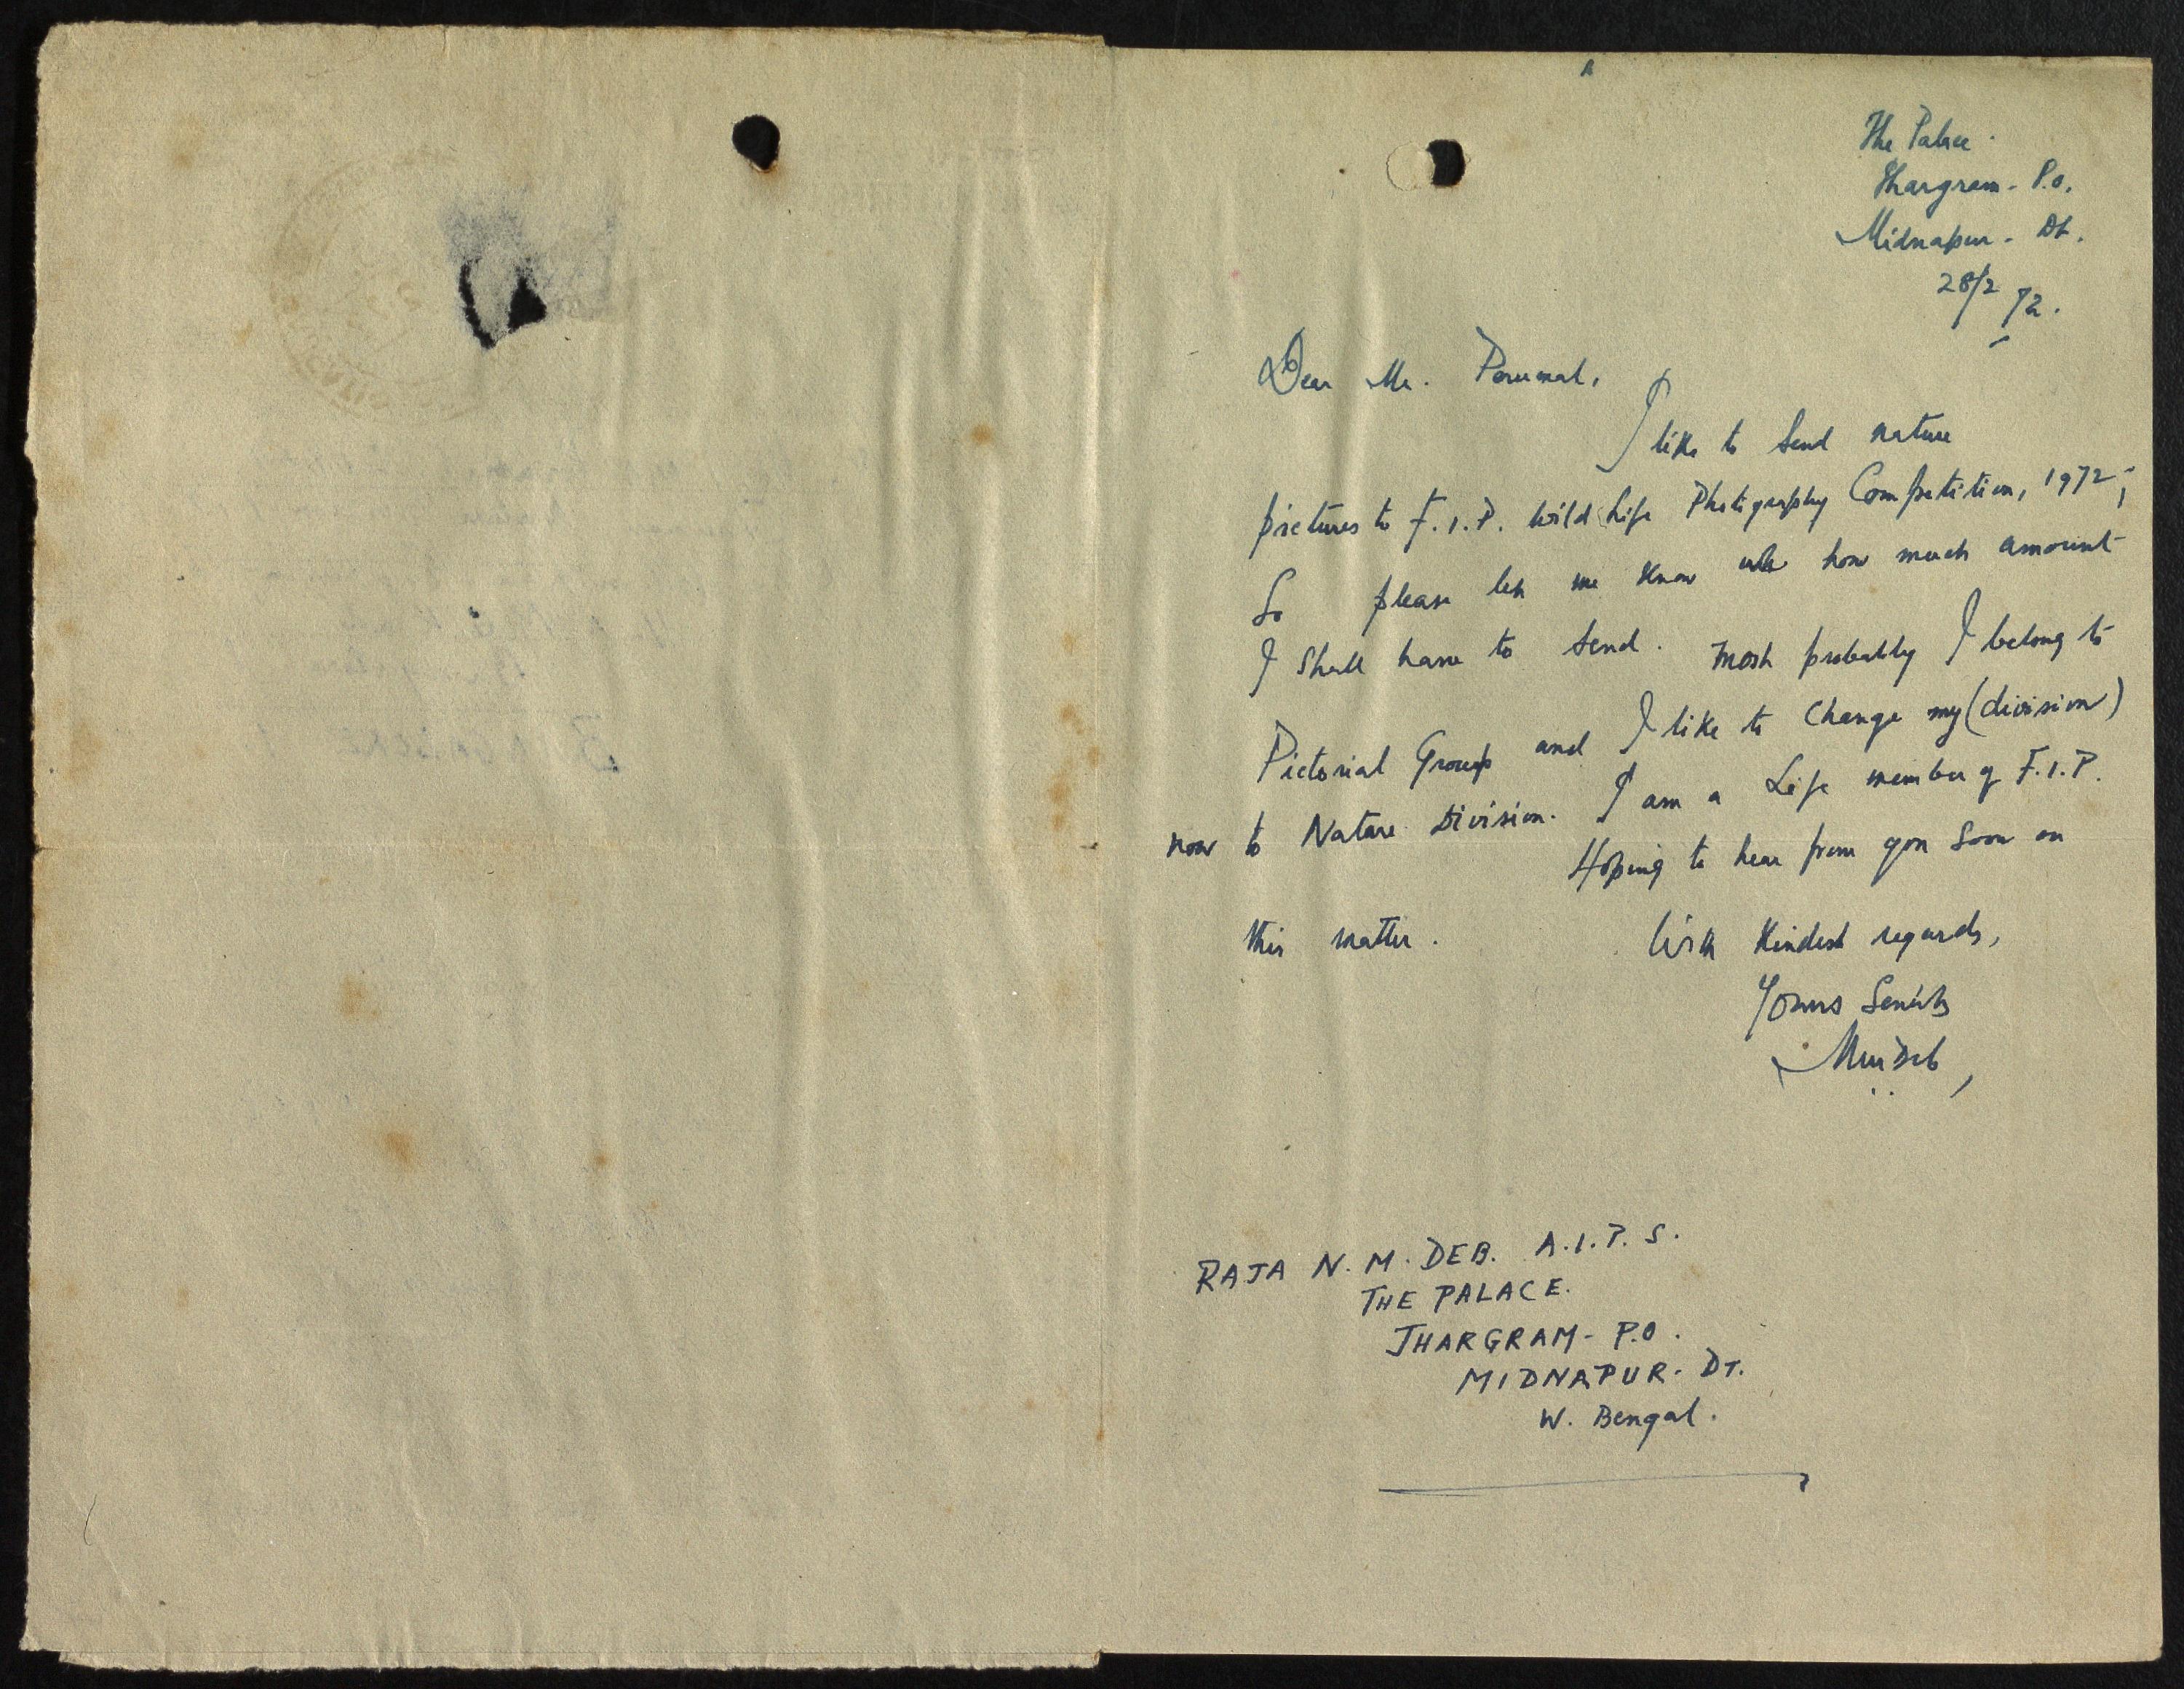 The Palace.
Jhargram - P.O.
Midnapur - Dt.
28/2/72.
Dear Mr. Perumal,
I like to send nature
pictures to F.I.P. Wild Life Photography Competition, 1972;
So please let me know how much amount
I shall have to send. Most probably I belong to
Pictorial Group and I like to change my (division)
now to Nature Division. I am a Life member of F.I.P.
Hoping to hear from you soon on
this matter. With kindest regards,
Yours
RAJA N. M. DEB. A.I.P.S.
THE PALACE.
JHARGRAM - P.O.
MIDNAPUR - DT.
W. Bengal.